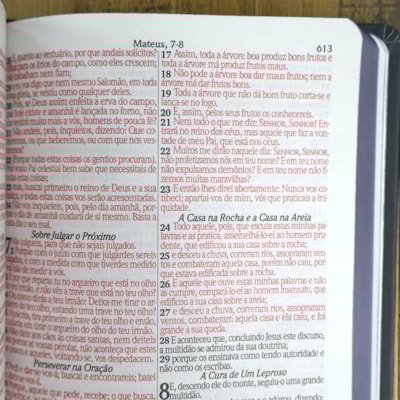 Mateus, 7-8
613
E, quanto ao vestuário, por que andais solícitos?
para os lírios do campo, como eles crescem;
trabalham nem fiam;
vos digo que nem mesmo Salomão, em toda
glória, se vestiu como qualquer deles.
Pois, se Deus assim enfeita a erva do campo,
hoje existe e amanhã é lançada no forno, não
muito mais a vós, homens de pouca fé?
Não andeis, pois, inquietos, dizendo: Que co-
ou que beberemos, ou com que nos ves-
Porque todas estas coisas os gentios procuram).
Pai celestial bem sabe que necessitais de
todas estas coisas;
mas, buscai primeiro o reino de Deus e a sua
e todas estas coisas vos serão acrescentadas.
Não vos inquieteis, pois, pelo dia amanhã, por-
dia de amanhã cuidará si mesmo. Basta a
dia o seu mal.
Sobre Julgar o Próximo
7 julgueis, para que não sejais julgados.
Porque com o juízo com que julgardes sereis
e com a medida com que tiverdes medido
de medir a vós.
por que reparas tu no argueiro que está no olho
irmão, e não vês a trave que está no teu olho?
como dirás a teu irmão: Deixa-me tirar o ar-
do teu olho, estando uma trave no teu olho?
tira primeiro a trave do teu olho, e então
em tirar o argueiro do olho do teu irmão.
aos cães as coisas santas, nem deiteis
as vossas pérolas, não aconteça que as
pés e, voltando-se, vos despedacem.
Perseverar na Oração
e dar-se-vos-á; buscai e encontrareis; batei
17 Assim, toda a árvore boa produz bons frutos e
toda a árvore má produz frutos maus.
18 Não pode a árvore boa dar maus frutos; nem a
árvore má dar frutos bons.
19 Toda a árvore que não dá bom fruto corta-se e
lança-se no fogo.
20 E, assim, pelos seus frutos os conhecereis.
21 Nem todo o que me diz: SENHOR, SENHOR! En-
trará no reino dos céus, mas aquele que faz a von-
tade de meu Pai, que está nos céus.
22 Muitos me dirão naquele dia: SENHOR, SENHOR,
não profetizámos nós em teu nome? E em teu nome
não expulsamos demônios? E em teu nome não
fizemos muitas maravilhas?
23 E então lhes direi abertamente: Nunca vos co-
nheci; apartai-vos de mim, vós que praticais a ini-
quidade.
A Casa na Rocha e a Casa na Areia
24 Todo aquele, pois, que escuta estas minhas pa-
lavras e as pratica, assemelhá-lo-ei ao homem pru-
dente, que edificou a sua casa sobre a rocha;
25 e desceu a chuva, correram rios, assopraram ven-
tos e combateram aquela casa, porém não caiu, por-
que estava edificada sobre a rocha.
26 E aquele que ouve estas minhas palavras e não
as cumpre, compará-lo-ei ao homem insensato, que
edificou a sua casa sobre a areia;
27 e desceu a chuva, correram rios, assopraram
ventos, combateram aquela casa e ela caiu, e foi
grande a sua queda.
28 E aconteceu que, concluindo Jesus este discurso,
a multidão se admirou da sua doutrina;
29 porque os ensinava como tendo autoridade e
não como os escribas.
A Cura de Um Leproso
8 E, descendo ele do monte, seguiu-o uma grande
multidão.